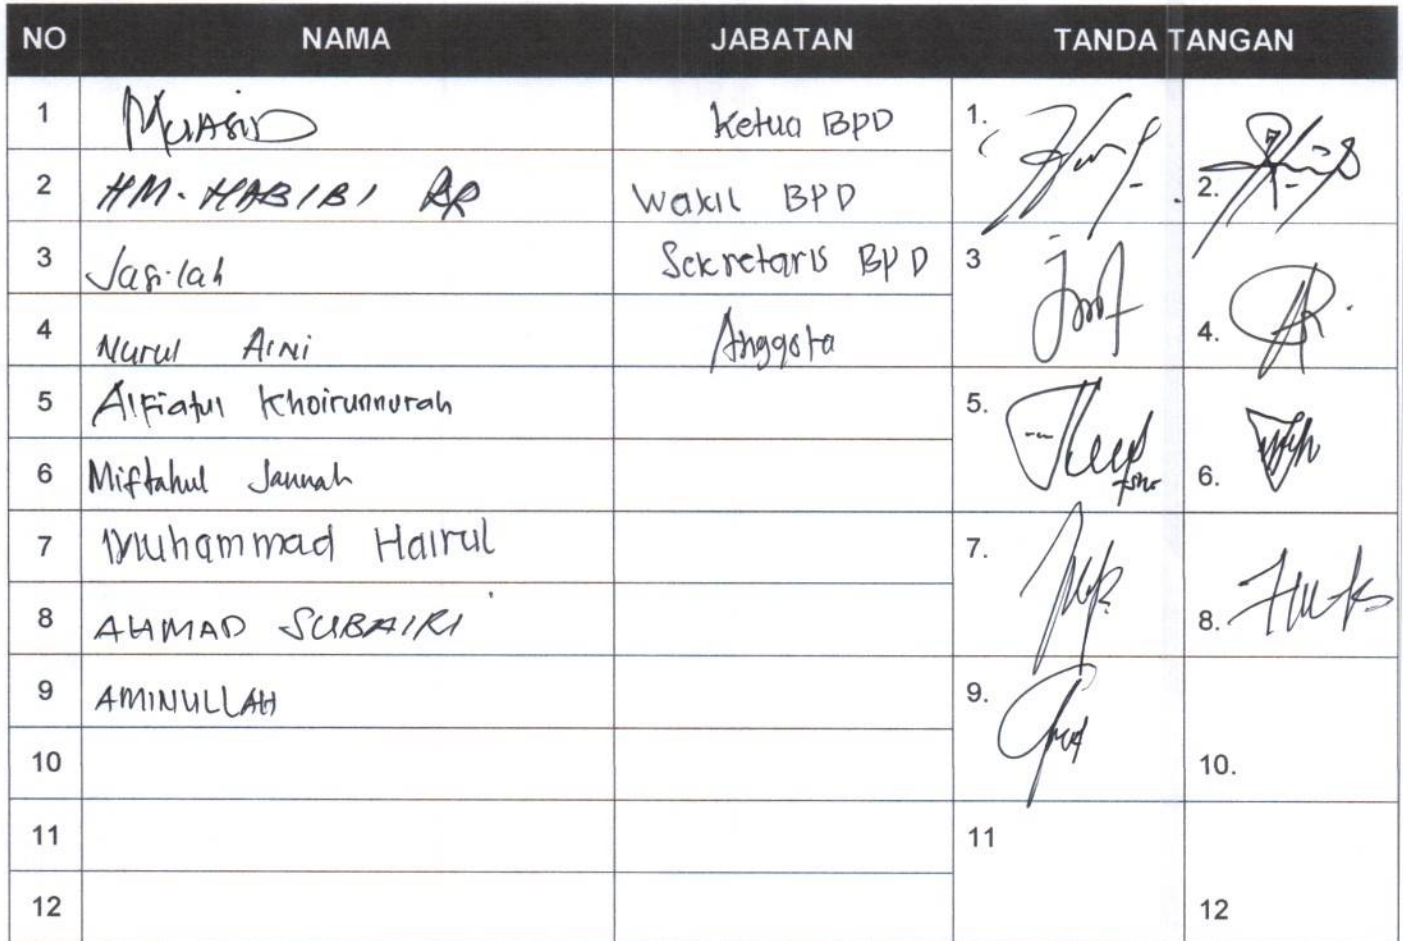 NO NAMA JABATAN TANDA TANGAN
1 Muasid Ketua BPD 1.
2 HM. HABIBI RR Wakil BPD 2.
3 Jasilah Sekretaris BPD 3
4 Nurul Aini Anggota 4.
5 Alfiatul Khoirunnurah 5.
6 Miftahul Jannah 6.
7 Muhammad Hairul 7.
8 AHMAD SUBAIRI 8.
9 AMINULLAH 9.
10 10.
11 11
12 12